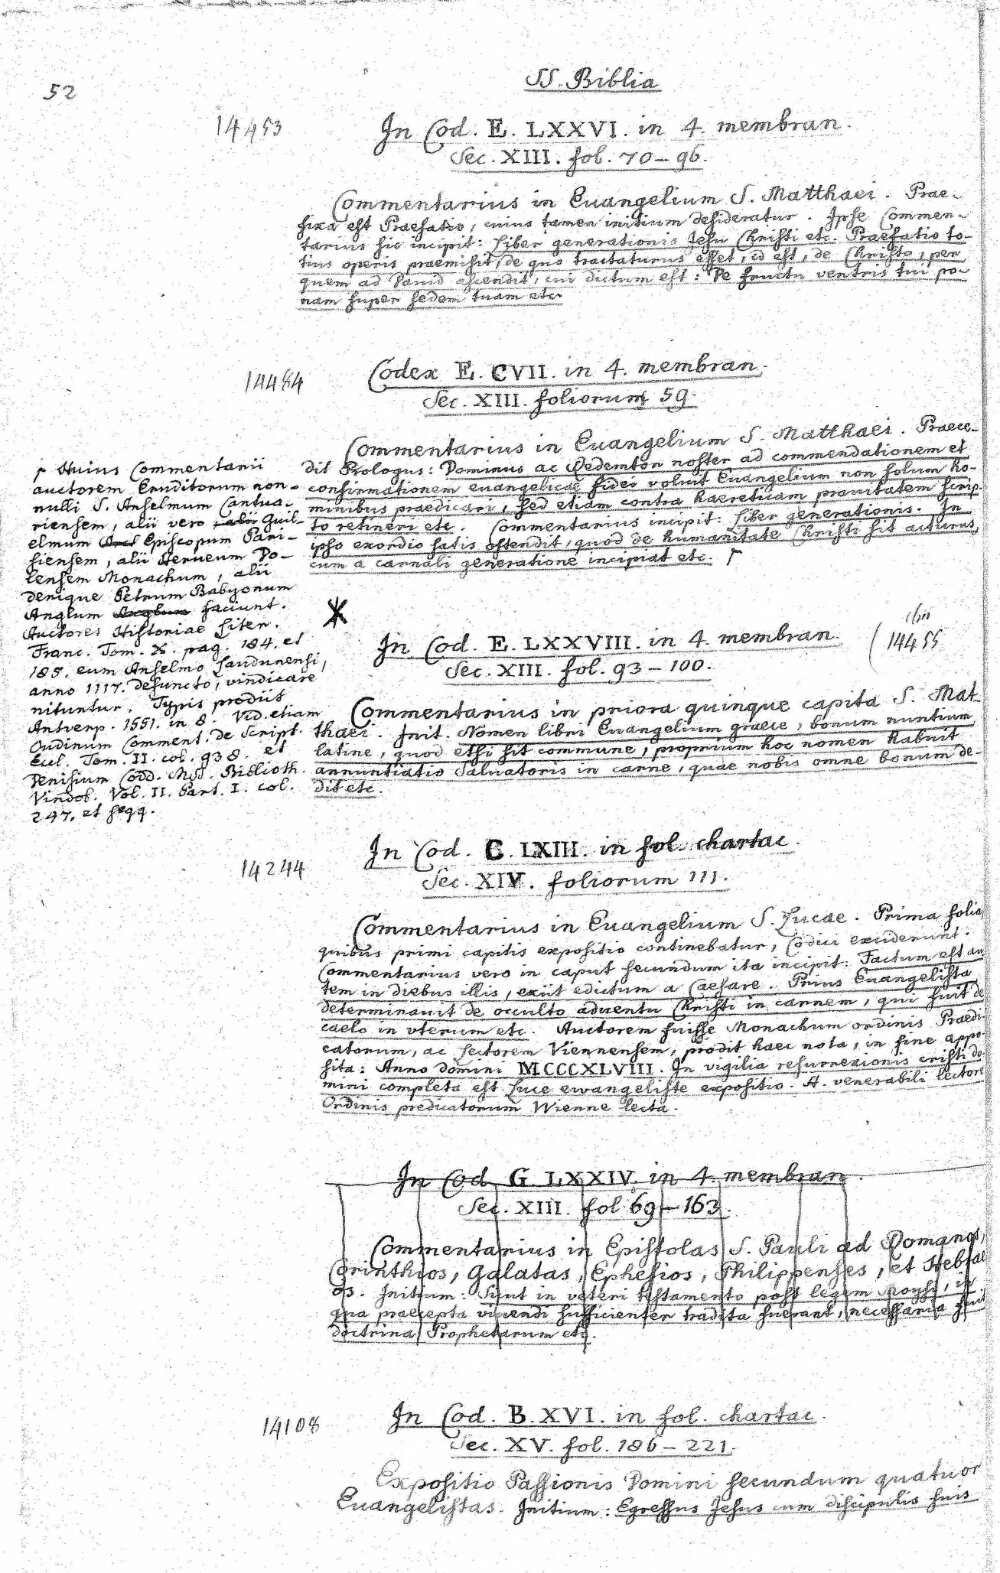 52
SS. Biblia
14453
In Cod. E. LXXVI. in 4. membran.
Sec. XIII. fol. 70-96.
Commentarius in Euangelium S. Matthaei. Prae-
fixa est Praefatio, cuius tamen initium desideratur. Ipse Commen-
tarius sic incipit: Liber generationis Iesu Christi etc. Praefatio to-
tius operis praemisit, de quo tractaturus esset, id est, de Christo, per
quem ad Dauid ascendit, cui dictum est: De fructu ventris tui po-
nam super sedem tuam etc.
14484
Codex E. CVII. in 4. membran.
Sec. XIII. foliorum 59.
Commentarius in Euangelium S. Matthaei. Praece-
dit Prologus: Dominus ac Redemtor noster ad commendationem et
confirmationem euangelicae fidei voluit Euangelium non solum ho-
minibus praedicari, sed etiam contra haereticam prauitatem scrip-
to retineri etc. Commentarius incipit: Liber generationis. In
ipso exordio satis ostendit, quod de humanitate Christi sit acturus,
cum a carnali generatione incipiat etc. ┌
┌ Huius Commentarii
auctorem Eruditorum non-
nulli S. Anselmum Cantua-
riensem, alii vero Guil-
elmum Episcopum Pari-
siensem, alii Herueum Do-
lensem Monachum, alii
denique Petrum Babyonum
Anglum faciunt.
Auctores Historiae Liter.
Franc. Tom. X. pag. 184. et
185. eum Anselmo Laudunensi,
anno 1117. defuncto, vindicare
nituntur. Typis prodiit
Antverp. 1551. in 8. Vid. etiam
Oudinum Comment. de Script.
Eccl. Tom. II. col. 938. et
Denisium Codd. Mss. Biblioth.
Vindob. Vol. II. Part. I. col.
247. et seqq.
*
In Cod. E. LXXVIII. in 4. membran.
14455
Sec. XIII. fol. 93-100.
Commentarius in priora quinque capita S. Mat-
thaei. Init. Nomen libri Euangelium graece, bonum nuntium
latine, quod etsi sit commune, proprium hoc nomen habuit
annuntiatio Saluatoris in carne, quae nobis omne bonum de-
dit etc.
14244
In Cod. C. LXIII. in fol. chartac.
Sec. XIV. foliorum 111.
Commentarius in Euangelium S. Lucae. Prima folia
quibus primi capitis expositio continebatur, Codici exciderunt.
Commentarius vero in caput secundum ita incipit: Factum est au
tem in diebus illis, exiit edictum a Caesare. Prius Euangelista
determinauit de occulto aduentu Christi in carnem, qui fuit de
caelo in vterum etc. Auctorem fuisse Monachum ordinis Praedi-
catorum, ac Lectorem Viennensem, prodit haec nota, in fine appo-
sita: Anno domini MCCCXLVIII. In vigilia resurrexionis cristi do-
mini completa est Luce ewangeliste expositio. A. venerabili lectore
Ordinis predicatorum Wienne lecta.
In Cod. G. LXXIV. in 4. membran.
Sec. XIII. fol. 69-163.
Commentarius in Epistolas S. Pauli ad Romanos,
Corinthios, Galatas, Ephesios, Philippenses, et Hebrae
os. Initium: Sicut in veteri testamento post legem Moysi, in
qua praecepta viuendi sufficienter tradita fuerant, necessaria fuit
doctrina Prophetarum etc.
14108
In Cod. B. XVI. in fol. chartac.
Sec. XV. fol. 186-221.
Expositio Passionis Domini secundum quatuor
Euangelistas. Initium: Egressus Jesus cum discipulis suis